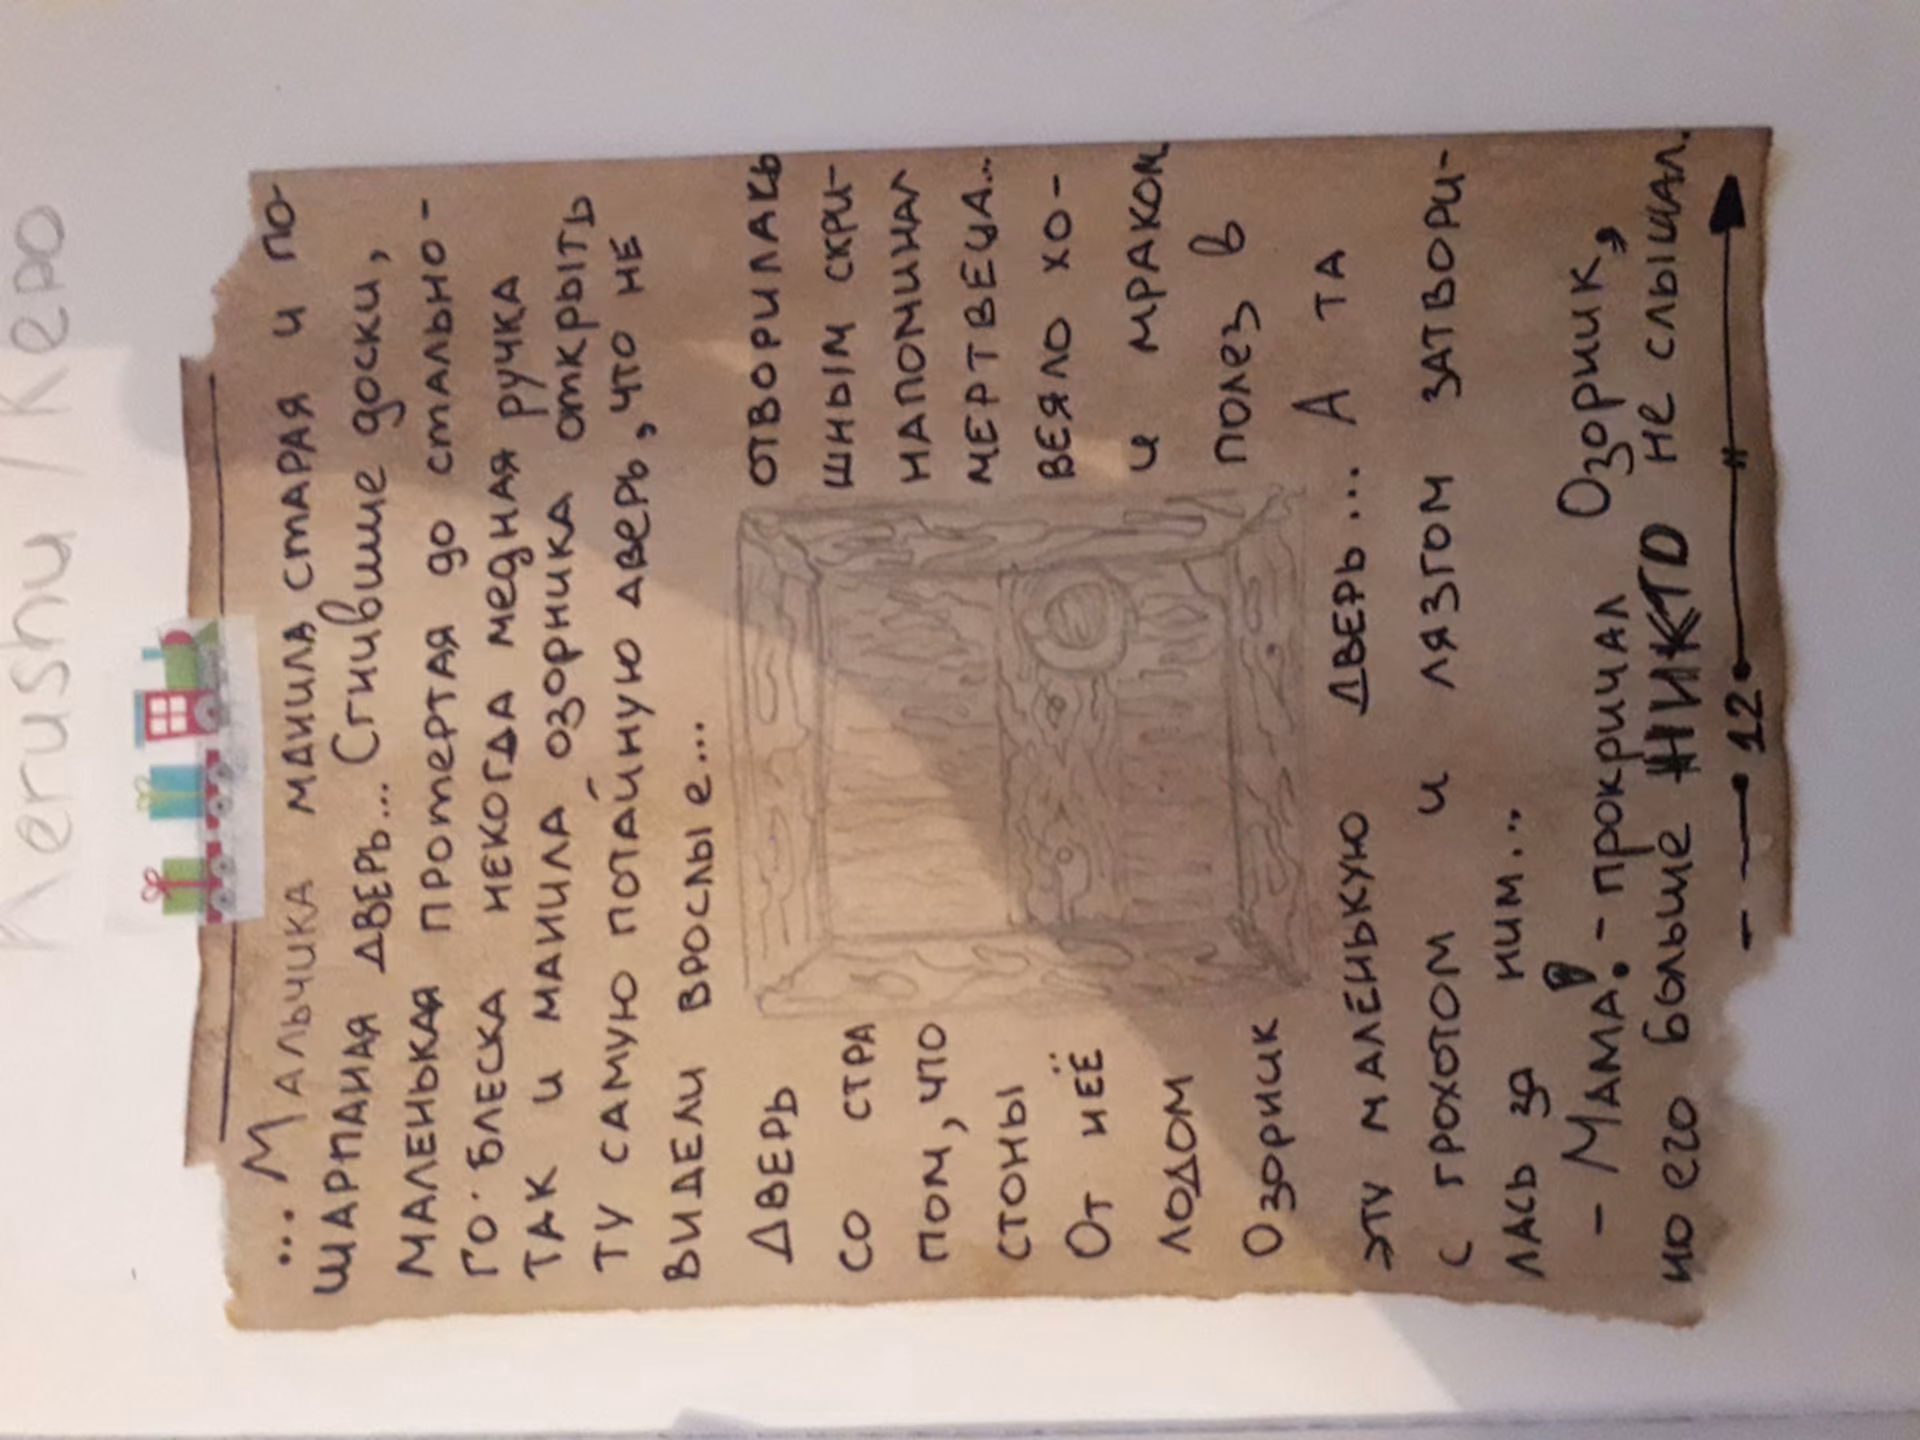 Kerushu / Керо
...Мальчика манила старая и по-
шарпаная дверь... Сгнившие доски,
маленькая протертая до стально-
го блеска некогда медная ручка
так и манила озорника открыть
ту самую потайную дверь, что не
видели врослые...
Дверь отворилась
со стра шным скри-
пом, что напоминал
стоны мертвеца...
От неё веяло хо-
лодом и мраком
Озорник полез в
эту маленькую дверь... А та
с грохотом и лязгом затвори-
лась за ним...
- Мама! - прокричал Озорник,
но его больше НИКТО не слышал.
12